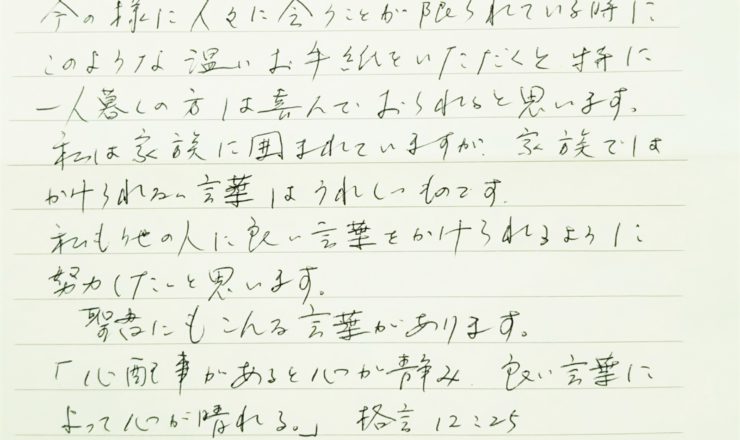 今の様に人々に会うことが限られている時に
このような温いお手紙をいただくと特に
一人暮しの方は喜んでおられると思います。
私は家族に囲まれていますが、家族では
かけられない言葉はうれしいものです。
私も他の人に良い言葉をかけられるように
努力したいと思います。
聖書にもこんな言葉があります。
「心配事があると心が 良い言葉に
よって心が晴れる。」 格言 12:25